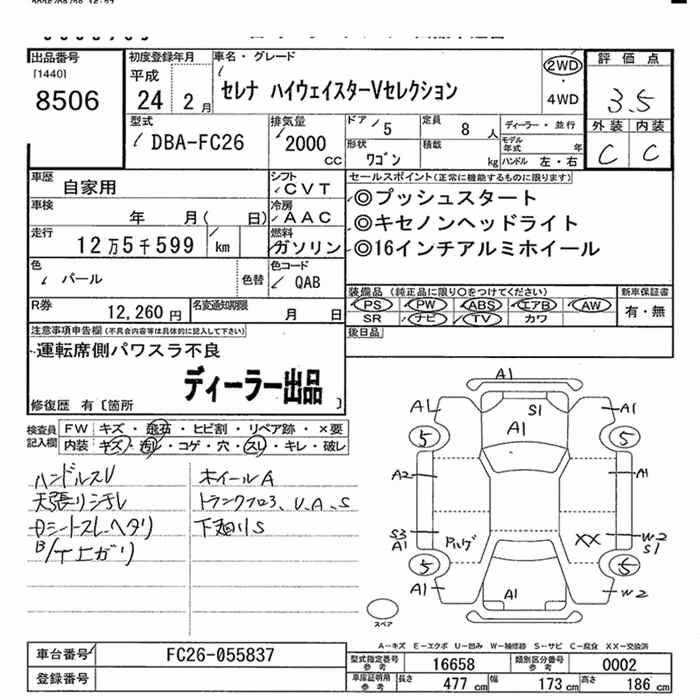 出品番号
[1440]
8506
初度登録年月
平成
24 2 月
車名・グレード
セレナ ハイウェイスターVセレクション
2WD
・
4WD
評価点
3.5
外装 内装
C C
型式
DBA-FC26
排気量
2000
CC
ドア 5
定員 8 人
ディーラー・並行
形状 ワゴン
積載 kg
モデル年式 年
ハンドル 左・右
車歴 自家用
シフト CVT
車検 年 月( 日)
冷房 AAC
走行 12万5千599 km
燃料 ガソリン
色 パール
色替
色コード QAB
R券 12,260 円
名変通知期限 月 日
セールスポイント(正常に機能するものに限ります)
◎プッシュスタート
◎キセノンヘッドライト
◎16インチアルミホイール
装備品(純正品に限り○をつけてください)
PS PW ABS エアB AW
SR ナビ TV カワ
新車保証書
有・無
後日品
注意事項申告欄(不具合内容等は具体的に記入して下さい)
運転席側パワスラ不良
ディーラー出品
修復歴 有〔箇所 〕
検査員記入欄
FW キズ・飛石・ヒビ割・リペア跡・×要
内装 キズ・汚レ・コゲ・穴・スレ・キレ・破レ
ハンドルスレ
天張リシチレ
Dシートスレ、ヘタリ
B/T上ガリ
ホイールA
トランクフロア、U、A、S
下廻リS
A1
A1
S1
A1
A1
5
5
A2
A1
S3
A1
Pハゲ
XX
W2
S1
5
5
A1
A1
W2
スペア
A-キズ E-エクボ U-凹み W-補修跡 S-サビ C-腐食 XX-交換済
車台番号 FC26-055837
登録番号
型式指定番号 参考 16658
類別区分番号 参考 0002
車庫証明用 参考
長さ 477 cm
幅 173 cm
高さ 186 cm